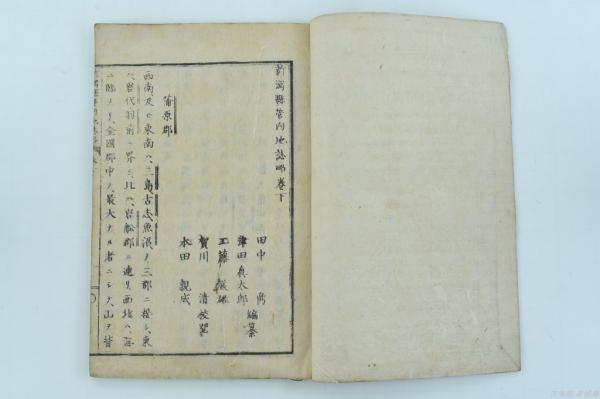 新潟縣管内地誌略卷下
田中
津田眞太郎 編纂
工藤
賀川 清
本田 親成
蒲原郡
西南及ヒ東南ハ三島古志魚沼ノ三郡ニ接シ東
ハ岩代羽前ト界シ北ハ岩船郡ニ連リ西北ハ海
ニ臨メリ全國郡中ノ最大ナル者ニシテ山ヲ背